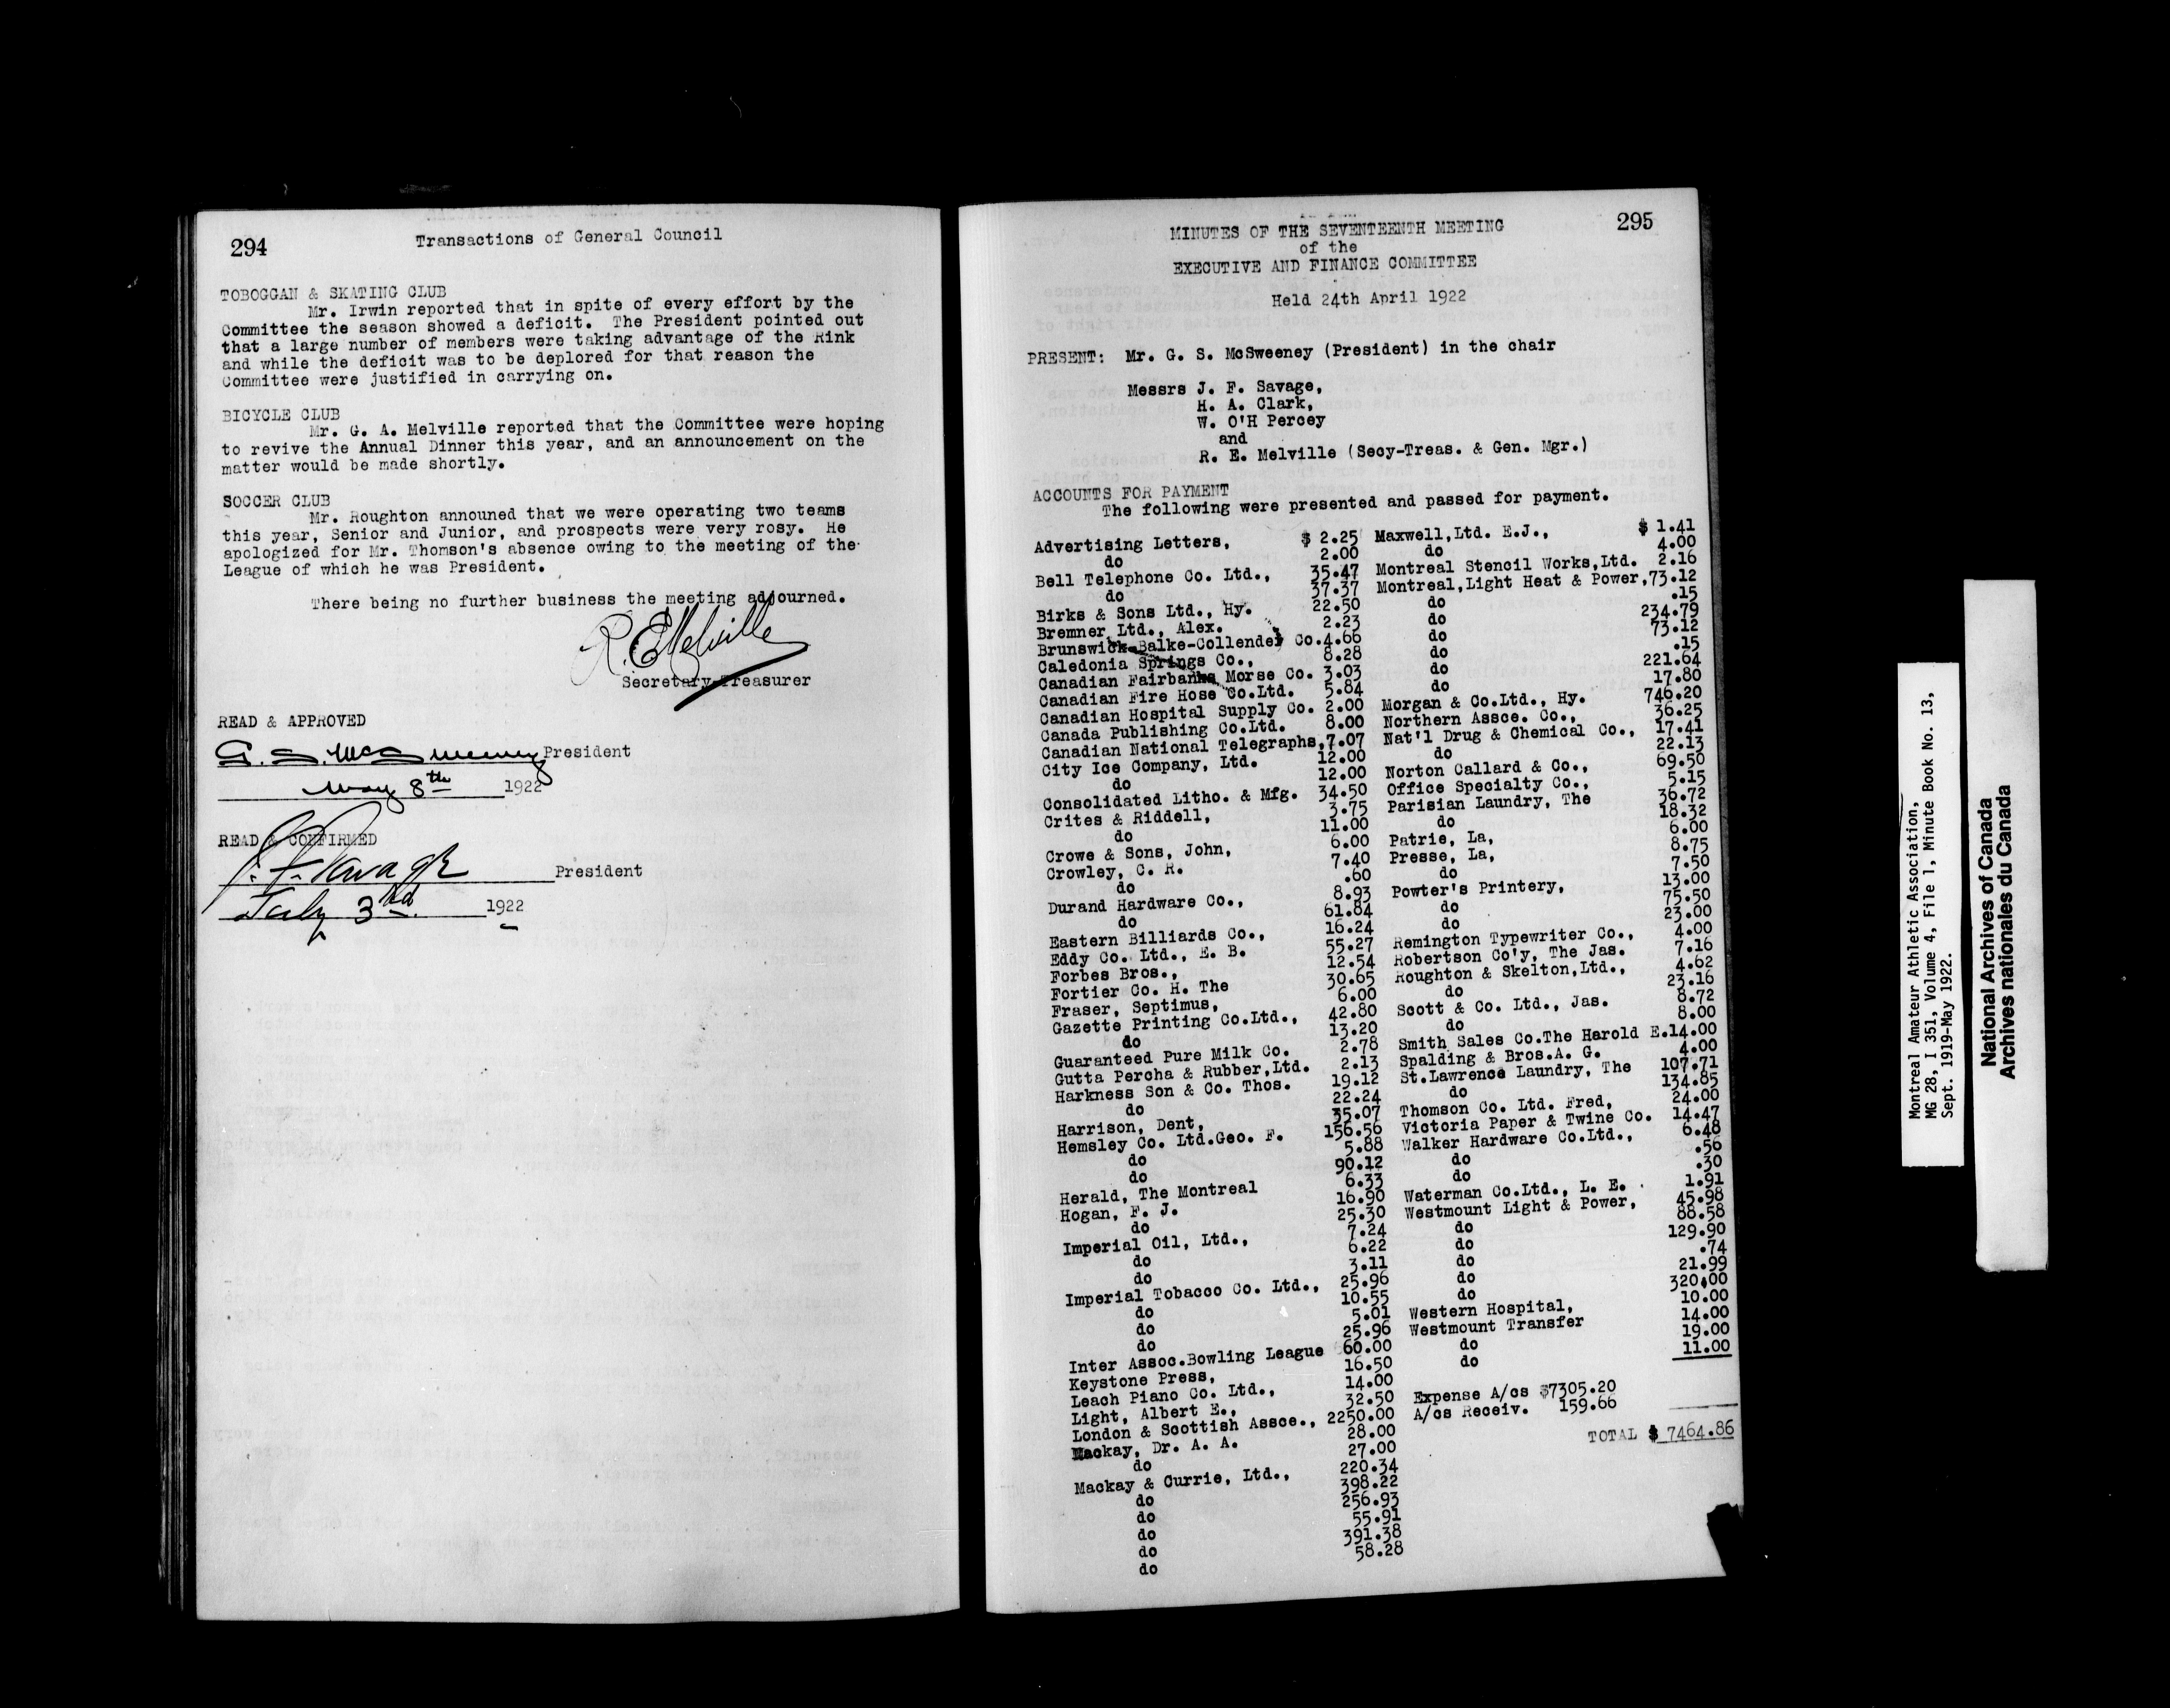 294
Transactions of General Council
TOBOGGAN & SKATING CLUB
Mr. Irwin reported that in spite of every effort by the
Committee the season showed a deficit. The President pointed out
that a large number of members were taking advantage of the Rink
and while the deficit was to be deplored for that reason the
Committee were justified in carrying on.
BICYCLE CLUB
Mr. G. A. Melville reported that the Committee were hoping
to revive the Annual Dinner this year, and an announcement on the
matter would be made shortly.
SOCCER CLUB
Mr. Roughton announed that we were operating two teams
this year, Senior and Junior, and prospects were very rosy. He
apologized for Mr. Thomson's absence owing to the meeting of the
League of which he was President.
There being no further business the meeting adjourned.
R. E. Melville
Secretary-Treasurer
READ & APPROVED
G. S. McSweeney President
May 8th 1922
READ & CONFIRMED
J. F. Savage President
July 3rd. 1922
295
MINUTES OF THE SEVENTEENTH MEETING
of the
EXECUTIVE AND FINANCE COMMITTEE
Held 24th April 1922
PRESENT: Mr. G. S. McSweeney (President) in the chair
Messrs J. F. Savage,
H. A. Clark,
W. O'H Percey
and
R. E. Melville (Secy-Treas. & Gen. Mgr.)
ACCOUNTS FOR PAYMENT
The following were presented and passed for payment.
Advertising Letters, $ 2.25
do 2.00
Bell Telephone Co. Ltd., 35.47
do 37.37
Birks & Sons Ltd., Hy. 22.50
Bremner Ltd., Alex. 2.23
Brunswick-Balke-Collender Co. 4.66
Caledonia Springs Co., 8.28
Canadian Fairbanks Morse Co. 3.03
Canadian Fire Hose Co.Ltd. 5.84
Canadian Hospital Supply Co. 2.00
Canada Publishing Co.Ltd. 8.00
Canadian National Telegraphs, 7.07
City Ice Company, Ltd. 12.00
do 12.00
Consolidated Litho. & Mfg. 34.50
Crites & Riddell, 3.75
do 11.00
Crowe & Sons, John, 6.00
Crowley, C. R. 7.40
do .60
Durand Hardware Co., 8.93
do 61.84
Eastern Billiards Co., 16.24
Eddy Co. Ltd., E. B. 55.27
Forbes Bros., 12.54
Fortier Co. H. The 30.65
Fraser, Septimus, 6.00
Gazette Printing Co.Ltd., 42.80
do 13.20
Guaranteed Pure Milk Co. 2.78
Gutta Percha & Rubber,Ltd. 2.13
Harkness Son & Co. Thos. 19.12
do 22.24
Harrison, Dent, 35.07
Hemsley Co. Ltd.Geo. F. 156.56
do 5.88
do 90.12
Herald, The Montreal 6.33
Hogan, F. J. 16.90
do 25.30
Imperial Oil, Ltd., 7.24
do 6.22
do 3.11
Imperial Tobacco Co. Ltd., 25.96
do 10.55
do 5.01
do 25.96
Inter Assoc.Bowling League 60.00
Keystone Press, 16.50
Leach Piano Co. Ltd., 14.00
Light, Albert E., 32.50
London & Scottish Assce., 2250.00
Mackay, Dr. A. A. 28.00
do 27.00
Mackay & Currie, Ltd., 220.34
do 398.22
do 256.93
do 55.91
do 391.38
do 58.28
Maxwell,Ltd. E.J., $ 1.41
do 4.00
Montreal Stencil Works,Ltd. 2.16
Montreal,Light Heat & Power, 73.12
do .15
do 234.79
do 73.12
do .15
do 221.64
do 17.80
Morgan & Co.Ltd., Hy. 746.20
Northern Assce. Co., 36.25
Nat'l Drug & Chemical Co., 17.41
do 22.13
Norton Callard & Co., 69.50
Office Specialty Co., 5.15
Parisian Laundry, The 36.72
do 18.32
Patrie, La, 6.00
Presse, La, 8.75
do 7.50
Powter's Printery, 13.00
do 75.50
do 23.00
Remington Typewriter Co., 4.00
Robertson Co'y, The Jas. 7.16
Roughton & Skelton,Ltd., 4.62
do 23.16
Scott & Co. Ltd., Jas. 8.72
do 8.00
Smith Sales Co.The Harold E. 14.00
Spalding & Bros.A. G. 4.00
St.Lawrence Laundry, The 107.71
do 134.85
Thomson Co. Ltd. Fred, 24.00
Victoria Paper & Twine Co. 14.47
Walker Hardware Co.Ltd., 6.48
do .56
do .30
Waterman Co.Ltd., L. E. 1.91
Westmount Light & Power, 45.98
do 88.58
do 129.90
do .74
do 21.99
do 320.00
Western Hospital, 10.00
Westmount Transfer 14.00
do 19.00
do 11.00
Expense A/cs $7305.20
A/cs Receiv. 159.66
TOTAL $ 7464.86
Montreal Amateur Athletic Association,
MG 28, I 351, Volume 4, File 1, Minute Book No. 13,
Sept. 1919-May 1922.
National Archives of Canada
Archives nationales du Canada